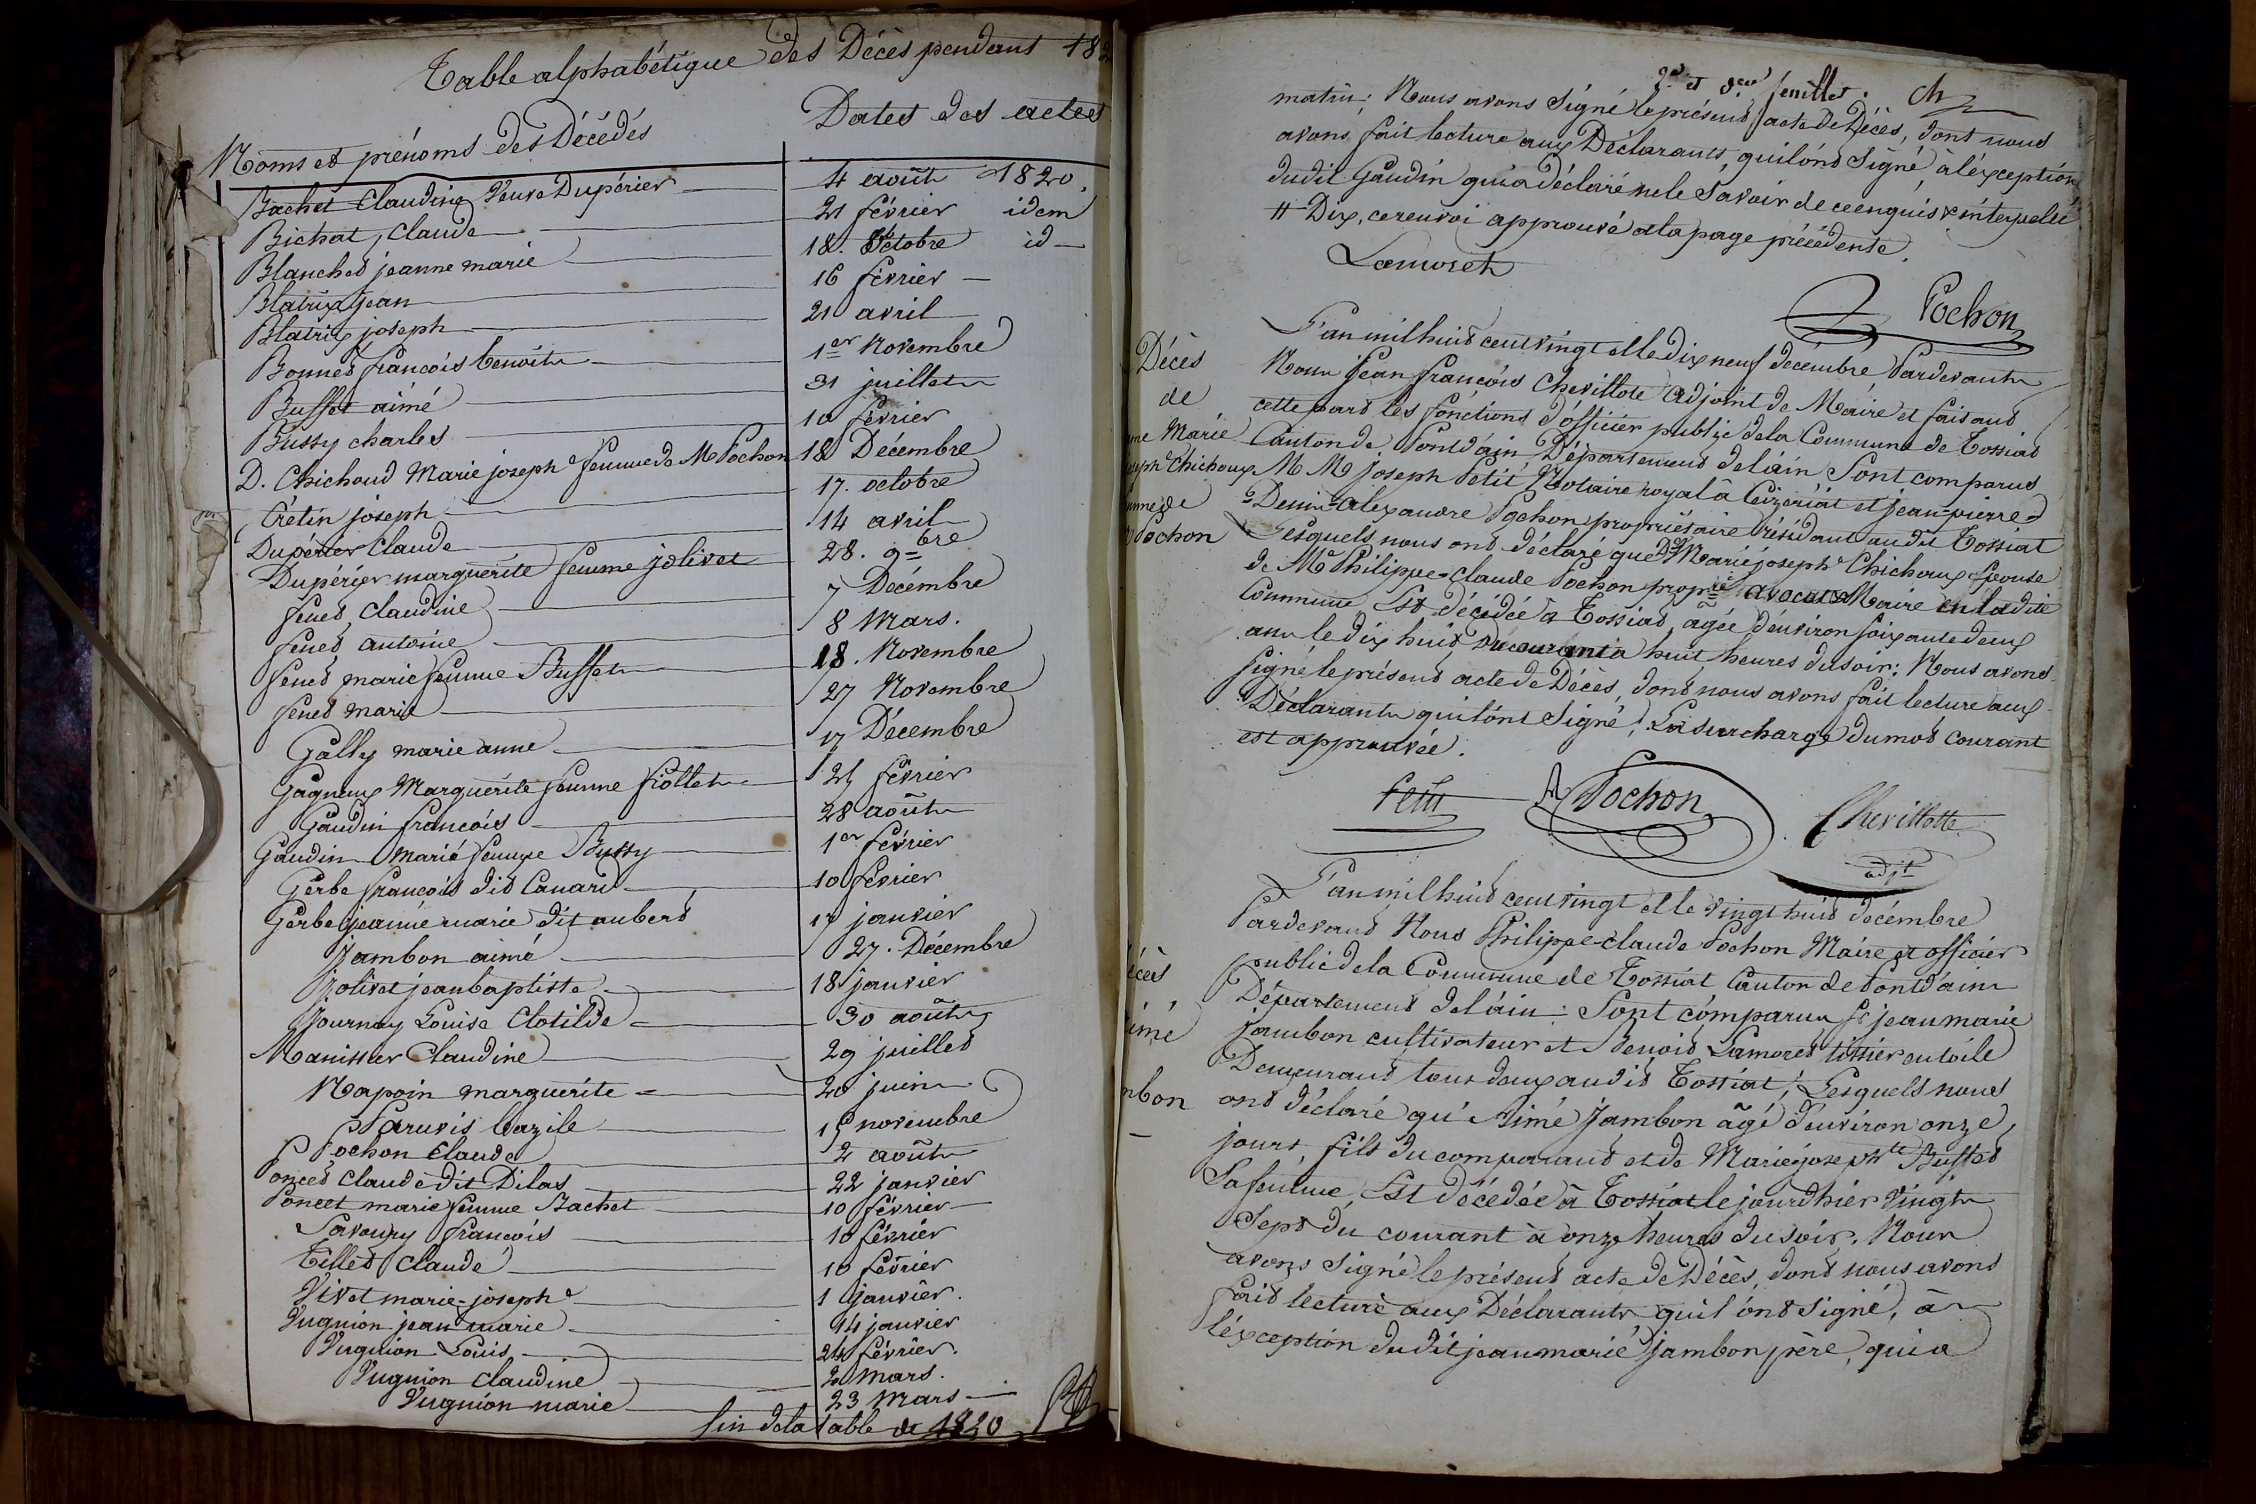 Table alphabétique des Décès pendant 18
Noms et prénoms des Décédés Dates des actes
Bachet Claudine Veuve Dupérier 4 août 1820.
Bichat, Claude 21 février idem
Blanched jeanne marie 18. 8bre octobre id
Blatrix jean 16 février
Blatrix joseph 21 avril
Bonned françois benoit 1er Novembre
Buffet aimé 31 juillet
Bussy charles 10 février
D. Chichoud Marie josephe femme de Me Pochon 18 Décembre
Crétin joseph 17. octobre
Dupérier Claude 14 avril
Dupérier marguerite femme jolivet 28. 9bre
fened, claudine 7 Décembre
fened antoine 8 Mars.
fened marie femme Buffet 18. Novembre
fened marie 27 Novembre
Gally marie anne 17 Décembre
Gagneux Marguerite femme fiollet 25 février
Gaudin françois 28 août
Gaudin Marie femme Bussy 1er février
Gerbe françois dit Canard 10 février
Gerbe jeanne marie dit aubert 17 janvier
Jambon aimé 27. Décembre
Jolivet jean baptiste 18 janvier
Journay Louise Clotilde 30 août
Manissier Claudine 29 juillet
Napoin marguerite 20 juin
Paruvis bazile 15 novembre
Pochon Claude 2 août
Ponced Claude dit Dilas 22 janvier
Poncet marie femme Bachet 10 février
Savoury françois 10 février
Tilled Claude 10 février
Vivet marie-josephe 1 janvier.
Vugnion jean marie 14 janvier
Vugnion Louis 24 février.
Vugnion Claudine 2 Mars.
Vugnion marie 23 Mars
fin de la table de 1820
2e et der feuillet.
matin; Nous avons signé le présent acte de Décès, dont nous
avons fait lecture aux Déclarants, qui l'ont signé à l'exception
dudit Gaudin qui a déclaré ne le savoir de ce enquis & interpellé
# Dix, ce renvoi approuvé à la page précédente.
Lamoret
Pochon
Décès
de
ne Marie
josephe Chichoux
femme de
Pochon
L'an mil huit cent vingt et le dix neuf décembre Pardevant
Nous Jean françois Chevillote adjoint de Maire et faisant
cette part les fonctions d'officier public de la Commune de Tossiat
Canton de Pontdain, Département de l'ain Sont comparus
M M joseph Petit Notaire royal à Ceizériat et jean-pierre=
=Denis-alexandre Pochon propriétaire résidant audit Tossiat
Lesquels nous ont déclaré que De Marie joseph Chichoux Epouse
de Me Philippe=claude Pochon propre avocat & Maire en ladite
Commune, Est décédée à Tossiat, âgée d'environ soixante deux
ans le dix huit Du courant à huit heures du soir: Nous avons
signé le présent acte de Décès, dont nous avons fait lecture aux
Déclarants qui l'ont signé, La surcharge du mot courant
est approuvée.
Petit Pochon Chevillotte
adjt
écès
imé
mbon
L'an mil huit cent vingt et le vingt huit décembre
Pardevant Nous Philippe-claude Pochon Maire et officier
public de la Commune de Tossiat Canton de Pontdain
Département de l'ain: Sont comparus Sr jean marie
jambon cultivateur et Benoit Lamoret tissier en toile
Demeurant tous deux audit Tossiat; Lesquels nous
ont déclaré qu'Aimé Jambon âgé d'environ onze
jours, fils du comparant et de Marie-josephte Buffet
Sa femme, Est décédée à Tossiat le jour d'hier vingt
Sept du courant à onze heures du soir. Nous
avons signé le présent acte de Décès, dont nous avons
fait lecture aux Déclarants qui l'ont signé, à
l'exception dudit jean marie jambon père, qui a